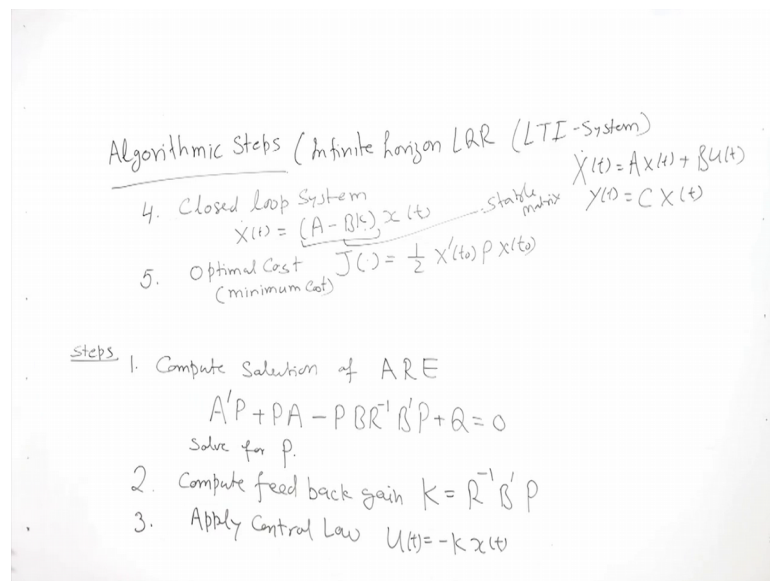 Algorithmic Steps (Infinite horizon LQR (LTI-System)
Ẋ(t) = AX(t) + BU(t)
Y(t) = CX(t)
4. Closed loop System
Ẋ(t) = (A - BK) x(t)
Stable matrix
5. Optimal Cost J(·) = 1/2 X'(to) P X(to)
(minimum Cost)
Steps
1. Compute Salution of ARE
A'P + PA - PBR⁻¹B'P + Q = 0
Solve for P.
2. Compute feed back gain K = R⁻¹B'P
3. Apply Control Law U(t) = -Kx(t)